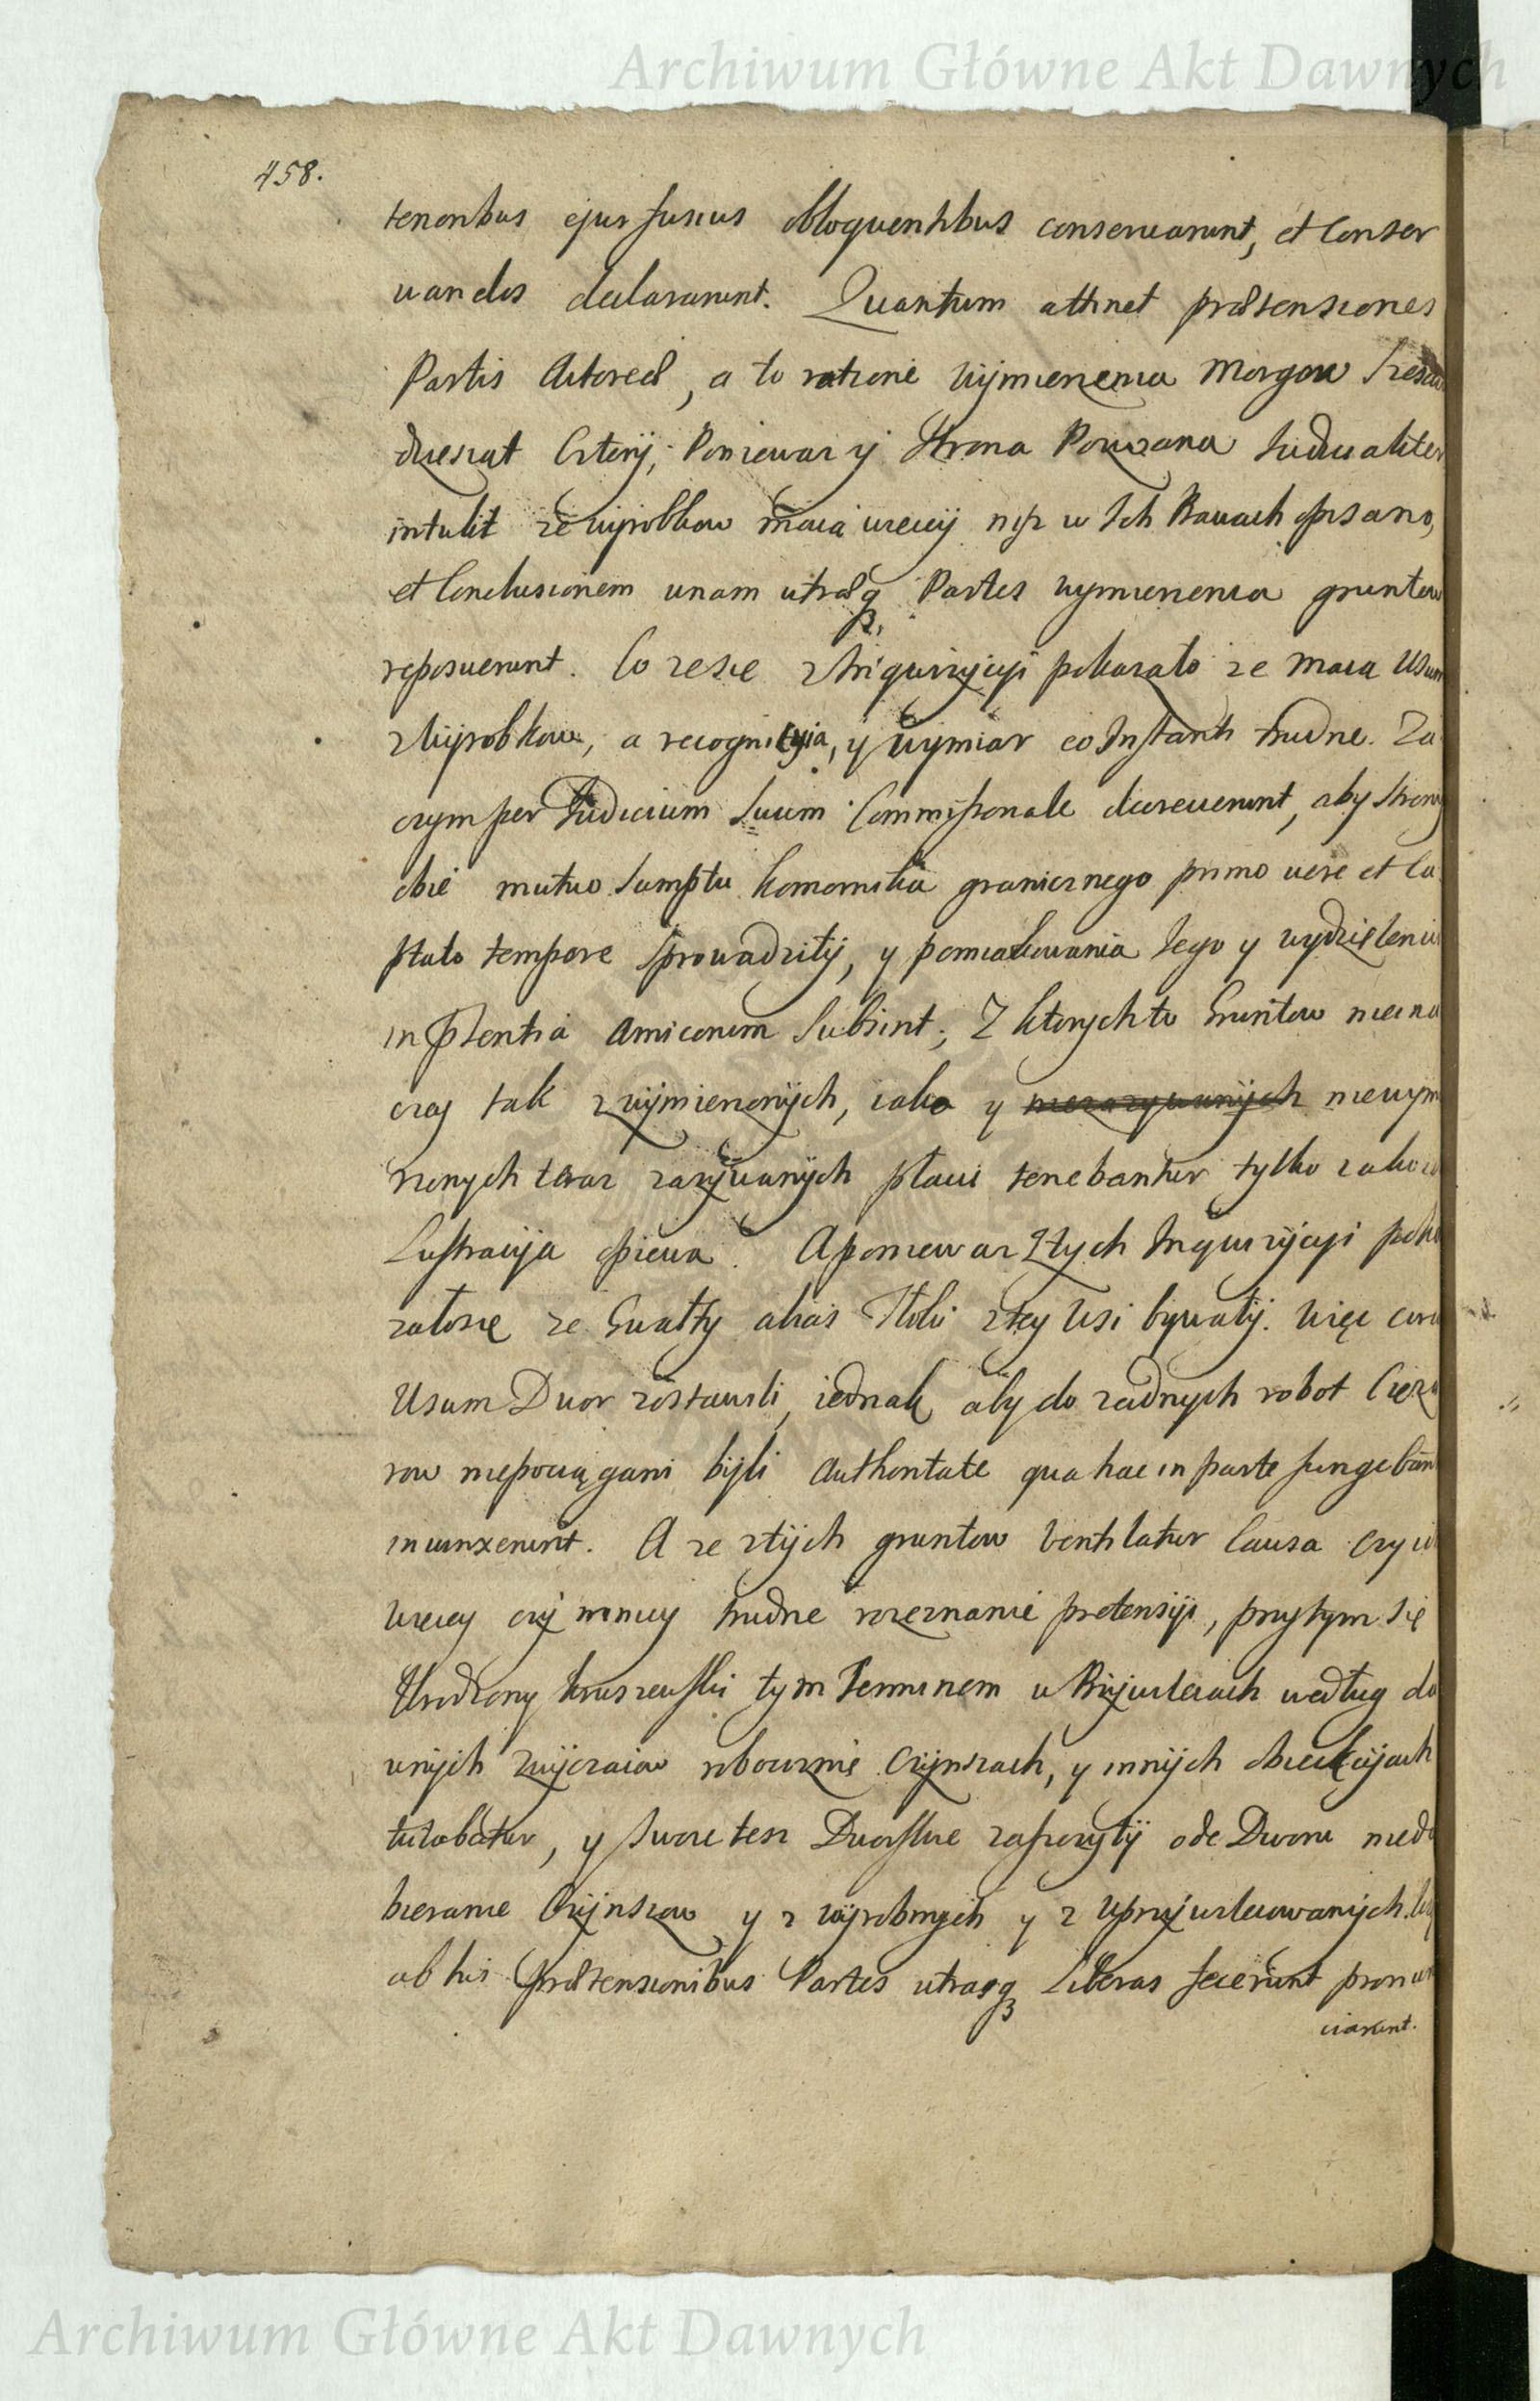 Archiwum Główne Akt Dawnych
458.
tenoribus ejus fusius obloquentibus conservarunt, et conser
vandos declararunt. Quantum attinet prætensiones
Partis Actoreæ, a to ratione wÿmierzenia Morgow szesc
dziesiąt Czterÿ, Poniewaz ÿ Strona Pozwana Judicialiter
intulit ze wÿrobkow maią wiecÿ niz w Ich Prawach opisano,
et Conclusionem unam utræq Partes wymierzenia gruntow
reposuerunt. Co ze sie z Inquizycyi pokazało ze maią Usum
z Wÿrobkow, a recognicyia, ÿ wymiar eo Instanti trudne. Za
czym per Judicium Suum Commissionale decreverunt, aby strony
obie mutuo sumptu komornika granicznego primo vere et ca
ptato tempore sprowadziłÿ, y pomiarkowania tego y wydzielenia
in pltentia amicorum subsint; Z ktorych to Gruntow niena
czaj tak zwÿmierzonÿch, iako y niewym
rzonych teraz zazÿwanÿch płacic tenebantur tylko iako
Lustracÿia opiewa. A poniewaz z tych Inquizÿcyi poka
załosie ze Gwałty alias Tłoki z tey Wsi bywałÿ. Więc circa
Usum Dwor zostawili, iednak aby do zadnych robot Cięza
row niepociągani bÿli authoritate qua hac in parte fungeban
iniunxerunt. A ze z tÿch gruntow ventilatur Causa czy
wiecey czÿ mniey trudne rozeznanie pretensÿi, przytym się
Urodzony Kruszewski tym Terminem w Przÿwileiach według da
wnÿch zwÿczaiow robociznie Czÿnszach, y innÿch obiekcÿiach
tutabatur, y swoie tesz Dworskie zaszczytÿ ode Dworu niedo
bieranie Czÿnszow y z wÿrobnÿch y z Uprzÿwileiowanÿch
ab his prætensionibus Partes utrasq Liberas fecerunt pronun
ciarunt.
Archiwum Główne Akt Dawnych